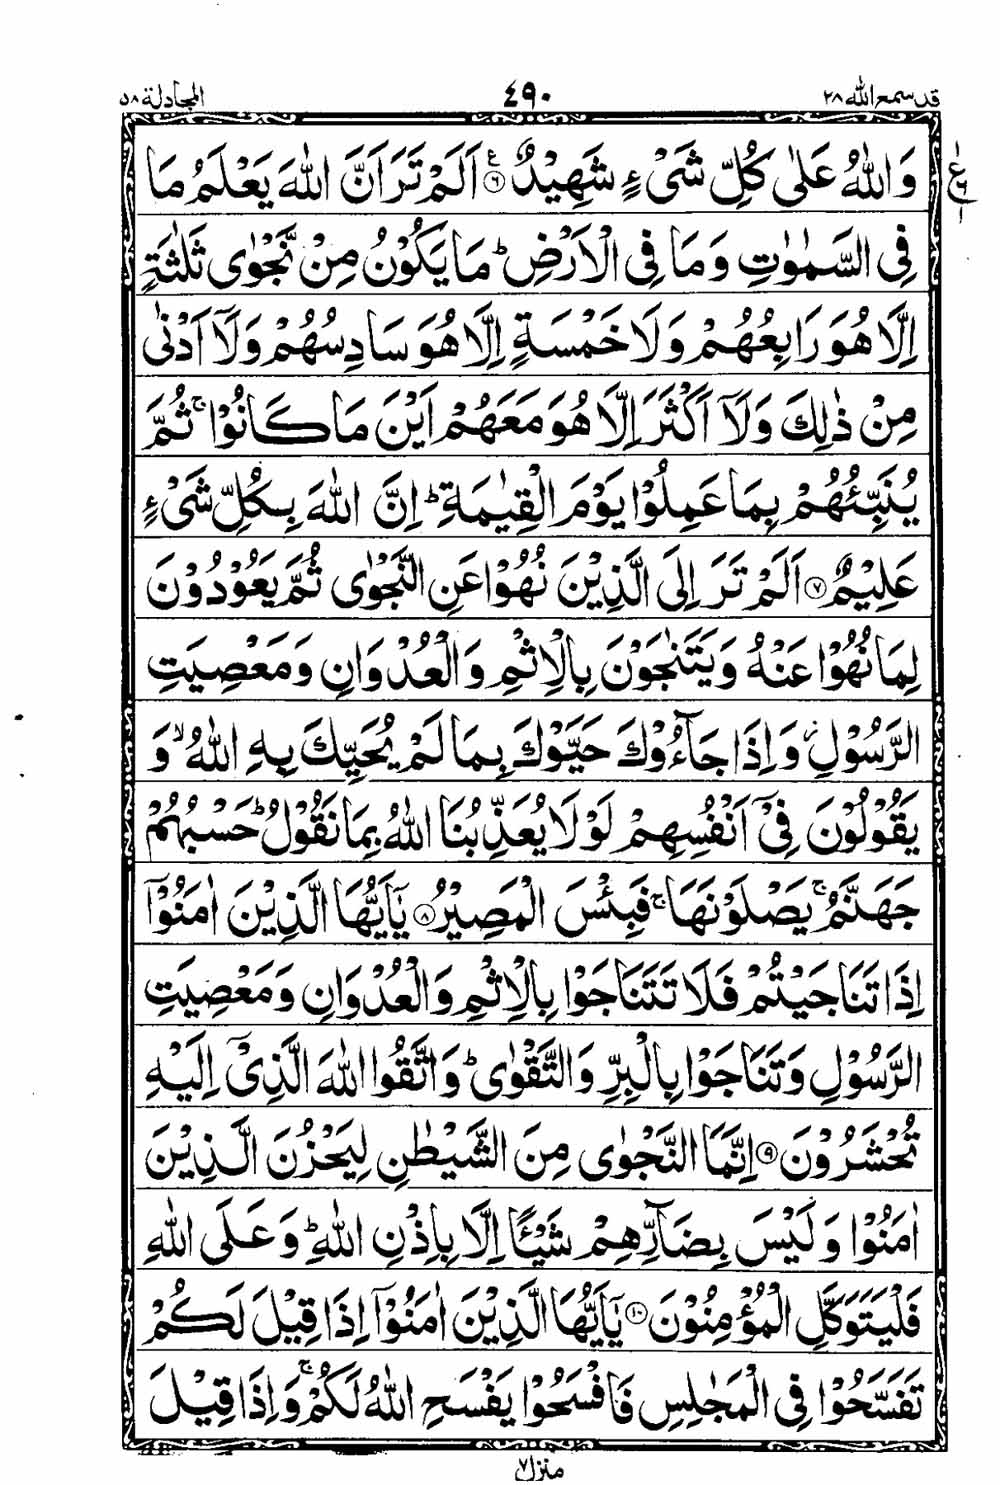 قد سمع الله ٢٨
٤٩٠
المجادلة ٥٨
وَاللّٰهُ عَلٰى كُلِّ شَىْءٍ شَهِيْدٌ ﴿٦﴾ ع اَلَمْ تَرَ اَنَّ اللّٰهَ يَعْلَمُ مَا
فِى السَّمٰوٰتِ وَمَا فِى الْاَرْضِ ؕ مَا يَكُوْنُ مِنْ نَّجْوٰى ثَلٰثَةٍ
اِلَّا هُوَ رَابِعُهُمْ وَلَا خَمْسَةٍ اِلَّا هُوَ سَادِسُهُمْ وَلَاۤ اَدْنٰى
مِنْ ذٰلِكَ وَلَاۤ اَكْثَرَ اِلَّا هُوَ مَعَهُمْ اَيْنَ مَا كَانُوْا ۚ ثُمَّ
يُنَبِّئُهُمْ بِمَا عَمِلُوْا يَوْمَ الْقِيٰمَةِ ؕ اِنَّ اللّٰهَ بِكُلِّ شَىْءٍ
عَلِيْمٌ ﴿٧﴾ اَلَمْ تَرَ اِلَى الَّذِيْنَ نُهُوْا عَنِ النَّجْوٰى ثُمَّ يَعُوْدُوْنَ
لِمَا نُهُوْا عَنْهُ وَيَتَنٰجَوْنَ بِالْاِثْمِ وَالْعُدْوَانِ وَمَعْصِيَتِ
الرَّسُوْلِ ۫ وَاِذَا جَآءُوْكَ حَيَّوْكَ بِمَا لَمْ يُحَيِّكَ بِهِ اللّٰهُ ۙ وَ
يَقُوْلُوْنَ فِىْۤ اَنْفُسِهِمْ لَوْلَا يُعَذِّبُنَا اللّٰهُ بِمَا نَقُوْلُ ؕ حَسْبُهُمْ
جَهَنَّمُ ۚ يَصْلَوْنَهَا ۚ فَبِئْسَ الْمَصِيْرُ ﴿٨﴾ يٰۤاَيُّهَا الَّذِيْنَ اٰمَنُوْۤا
اِذَا تَنَاجَيْتُمْ فَلَا تَتَنَاجَوْا بِالْاِثْمِ وَالْعُدْوَانِ وَمَعْصِيَتِ
الرَّسُوْلِ وَتَنَاجَوْا بِالْبِرِّ وَالتَّقْوٰى ؕ وَاتَّقُوا اللّٰهَ الَّذِىْۤ اِلَيْهِ
تُحْشَرُوْنَ ﴿٩﴾ اِنَّمَا النَّجْوٰى مِنَ الشَّيْطٰنِ لِيَحْزُنَ الَّذِيْنَ
اٰمَنُوْا وَلَيْسَ بِضَآرِّهِمْ شَيْـًٔا اِلَّا بِاِذْنِ اللّٰهِ ؕ وَعَلَى اللّٰهِ
فَلْيَتَوَكَّلِ الْمُؤْمِنُوْنَ ﴿١٠﴾ يٰۤاَيُّهَا الَّذِيْنَ اٰمَنُوْۤا اِذَا قِيْلَ لَكُمْ
تَفَسَّحُوْا فِى الْمَجٰلِسِ فَافْسَحُوْا يَفْسَحِ اللّٰهُ لَكُمْ ۚ وَاِذَا قِيْلَ
منزل ٧